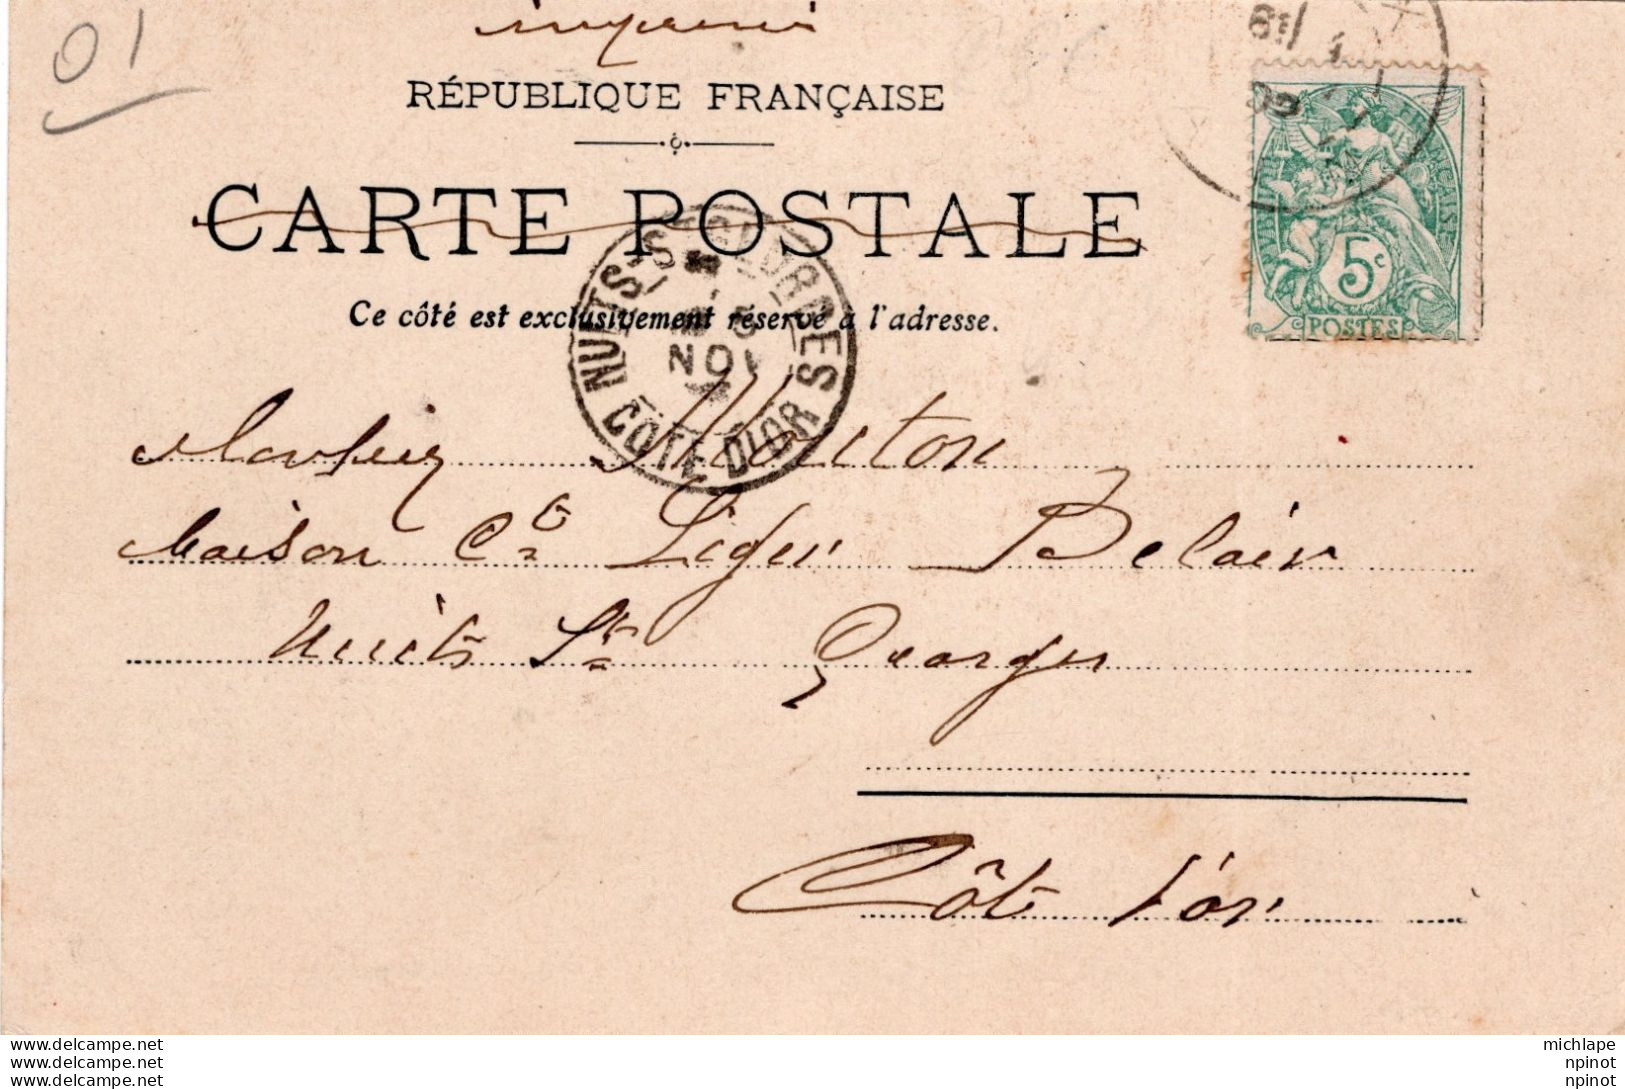 01
imprimé
RÉPUBLIQUE FRANÇAISE
CARTE POSTALE
Ce côté est exclusivement réservé à l'adresse.
NUITS-St-GEORGES
NOV
CÔTE D'OR
RÉPUBLIQUE FRANÇAISE
5c
POSTES
Mouton
Maison Ct Liger Belair
Nuits St Georges
Côte d'or
www.delcampe.net
www.delcampe.net
www.delcampe.net
michlape
npinot
npinot